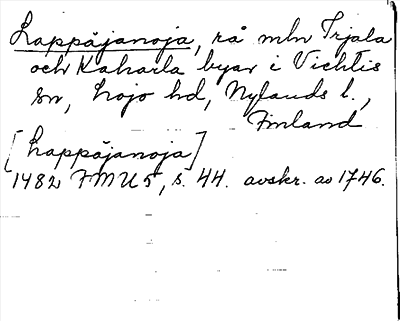 Lappåjanoja, rå mln Irjala
och Kaharla byar i Vichtis
sn, Lojo hd, Nylands l.,
Finland
[Lappåjanoja]
1482 FMU 5, s. 44. avskr. av 1746.